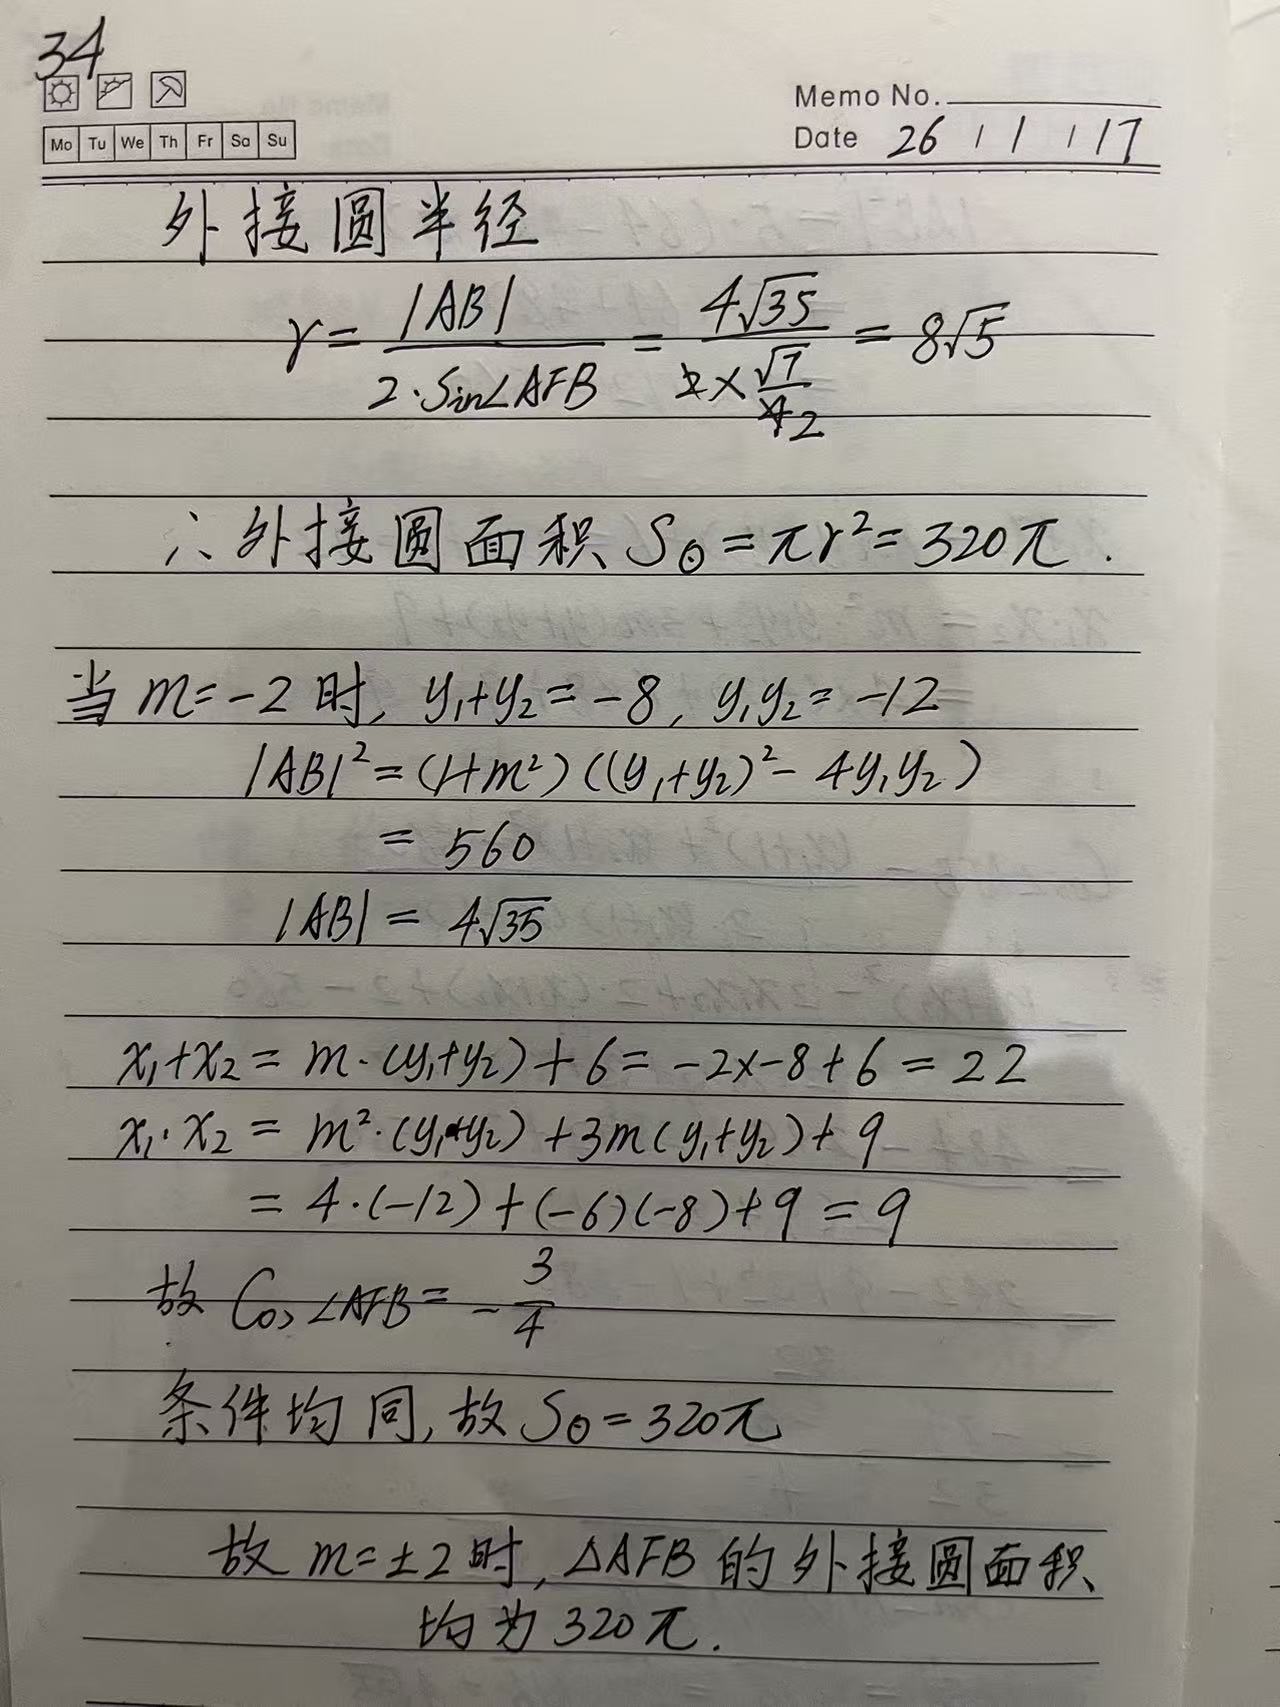 34
Memo No.
Mo Tu We Th Fr Sa Su
Date 26 / 1 / 17
外接圆半径
r = |AB| / (2·Sin∠AFB) = 4√35 / (2 × √7/4 2) = 8√5
∴ 外接圆面积 S⊙ = πr² = 320π.
当 m = -2 时, y₁+y₂ = -8, y₁y₂ = -12
|AB|² = (1+m²)((y₁+y₂)² - 4y₁y₂)
= 560
|AB| = 4√35
x₁+x₂ = m·(y₁+y₂) + 6 = -2×-8+6 = 22
x₁·x₂ = m²·(y₁·y₂) + 3m(y₁+y₂) + 9
= 4·(-12) + (-6)(-8) + 9 = 9
故 Cos∠AFB = -3/4
条件均同, 故 S⊙ = 320π
故 m = ±2 时, △AFB 的外接圆面积
均为 320π.